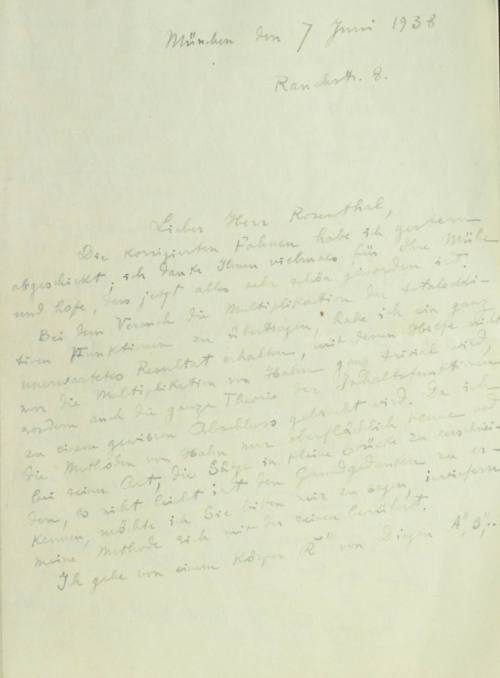 München den 7 Juni 1938
Rauchstr. 8.
Lieber Herr Rosenthal,
Die korrigierten Fahnen habe ich gestern
abgeschickt; ich danke Ihnen vielmals für Ihre Mühe
und hoffe, dass jetzt alles sehr schön geworden ist.
Bei dem Versuch die Multiplikation der totaladdi-
tiven Funktionen zu übertragen, habe ich ein ganz
unerwartetes Resultat erhalten, mit dessen Hilfe nicht
nur die Multiplikation von Hahn ganz trivial wird,
sondern auch die ganze Theorie der Inhaltsfunktionen
zu einem gewissen Abschluss gebracht wird. Da ich
die Methoden von Hahn nur oberflächlich kenne und
bei seiner Art, die Sätze in kleine Stücke zu zerschnei-
den, es nicht leicht ist den Grundgedanken zu er-
kennen, möchte ich Sie bitten mir zu sagen, inwiefern
meine Methode sich mit der seinen berührt.
Ich gehe von einem Körper von Dingen A", B", ..